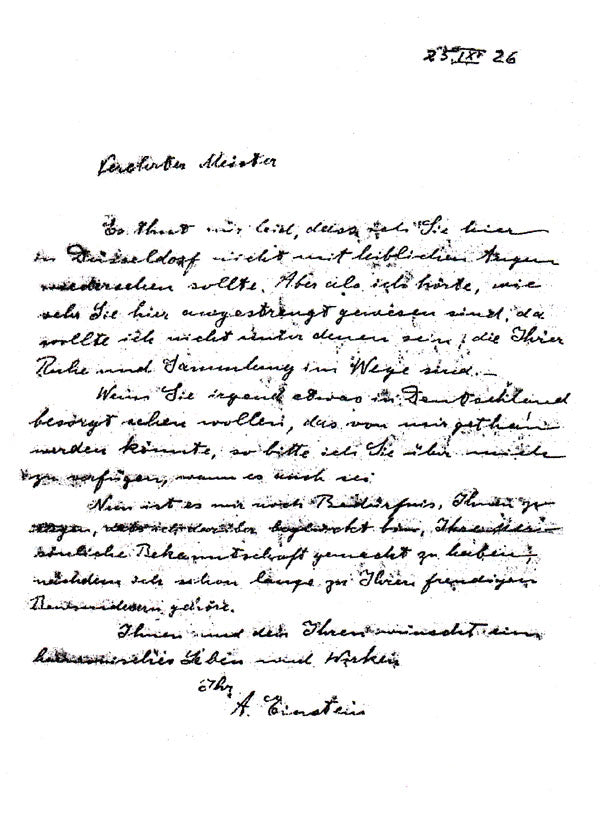 23. IX. 26
Verehrter Meister
Es thut mir leid, dass ich Sie hier
in Düsseldorf nicht mit leiblichen Augen
wiedersehen sollte. Aber als ich hörte, wie
sehr Sie hier angestrengt gewesen sind, da
wollte ich nicht unter denen sein, die Ihrer
Ruhe und Sammlung im Wege sind. –
Wenn Sie irgend etwas in Deutschland
besorgt sehen wollen, das von mir gethan
werden könnte, so bitte ich Sie über mich
zu verfügen, wann es auch sei
Nun ist es mir noch Bedürfnis, Ihnen zu
sagen, beglückt bin, Ihre
sönliche Bekanntschaft gemacht zu haben,
nachdem ich schon lange zu Ihren freudigen
Bewunderern gehöre.
Ihnen und den Ihren wünscht ein
harmonisches Leben und Wirken
Ihr
A. Einstein